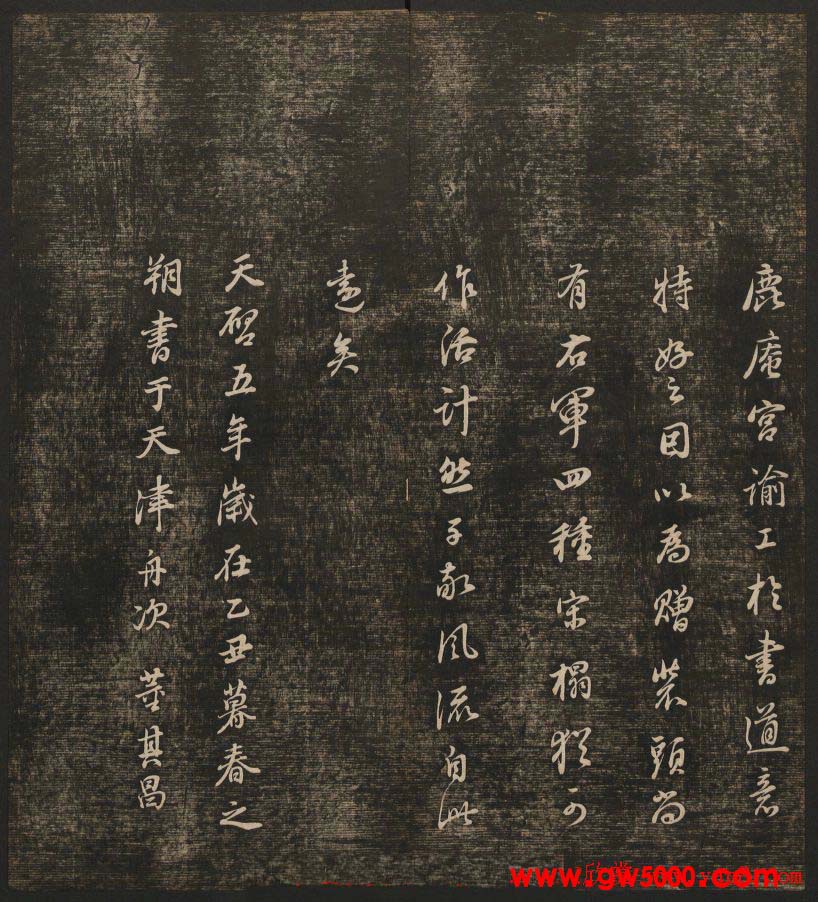 鹿庵宫谕工於書道意
特好之因以為贈裝頭尚
有右軍四種宋榻猶可
作活計然子敬風流自此
遠矣
天啟五年歲在乙丑暮春之
朔書于天津舟次 董其昌
www.gw5000.com